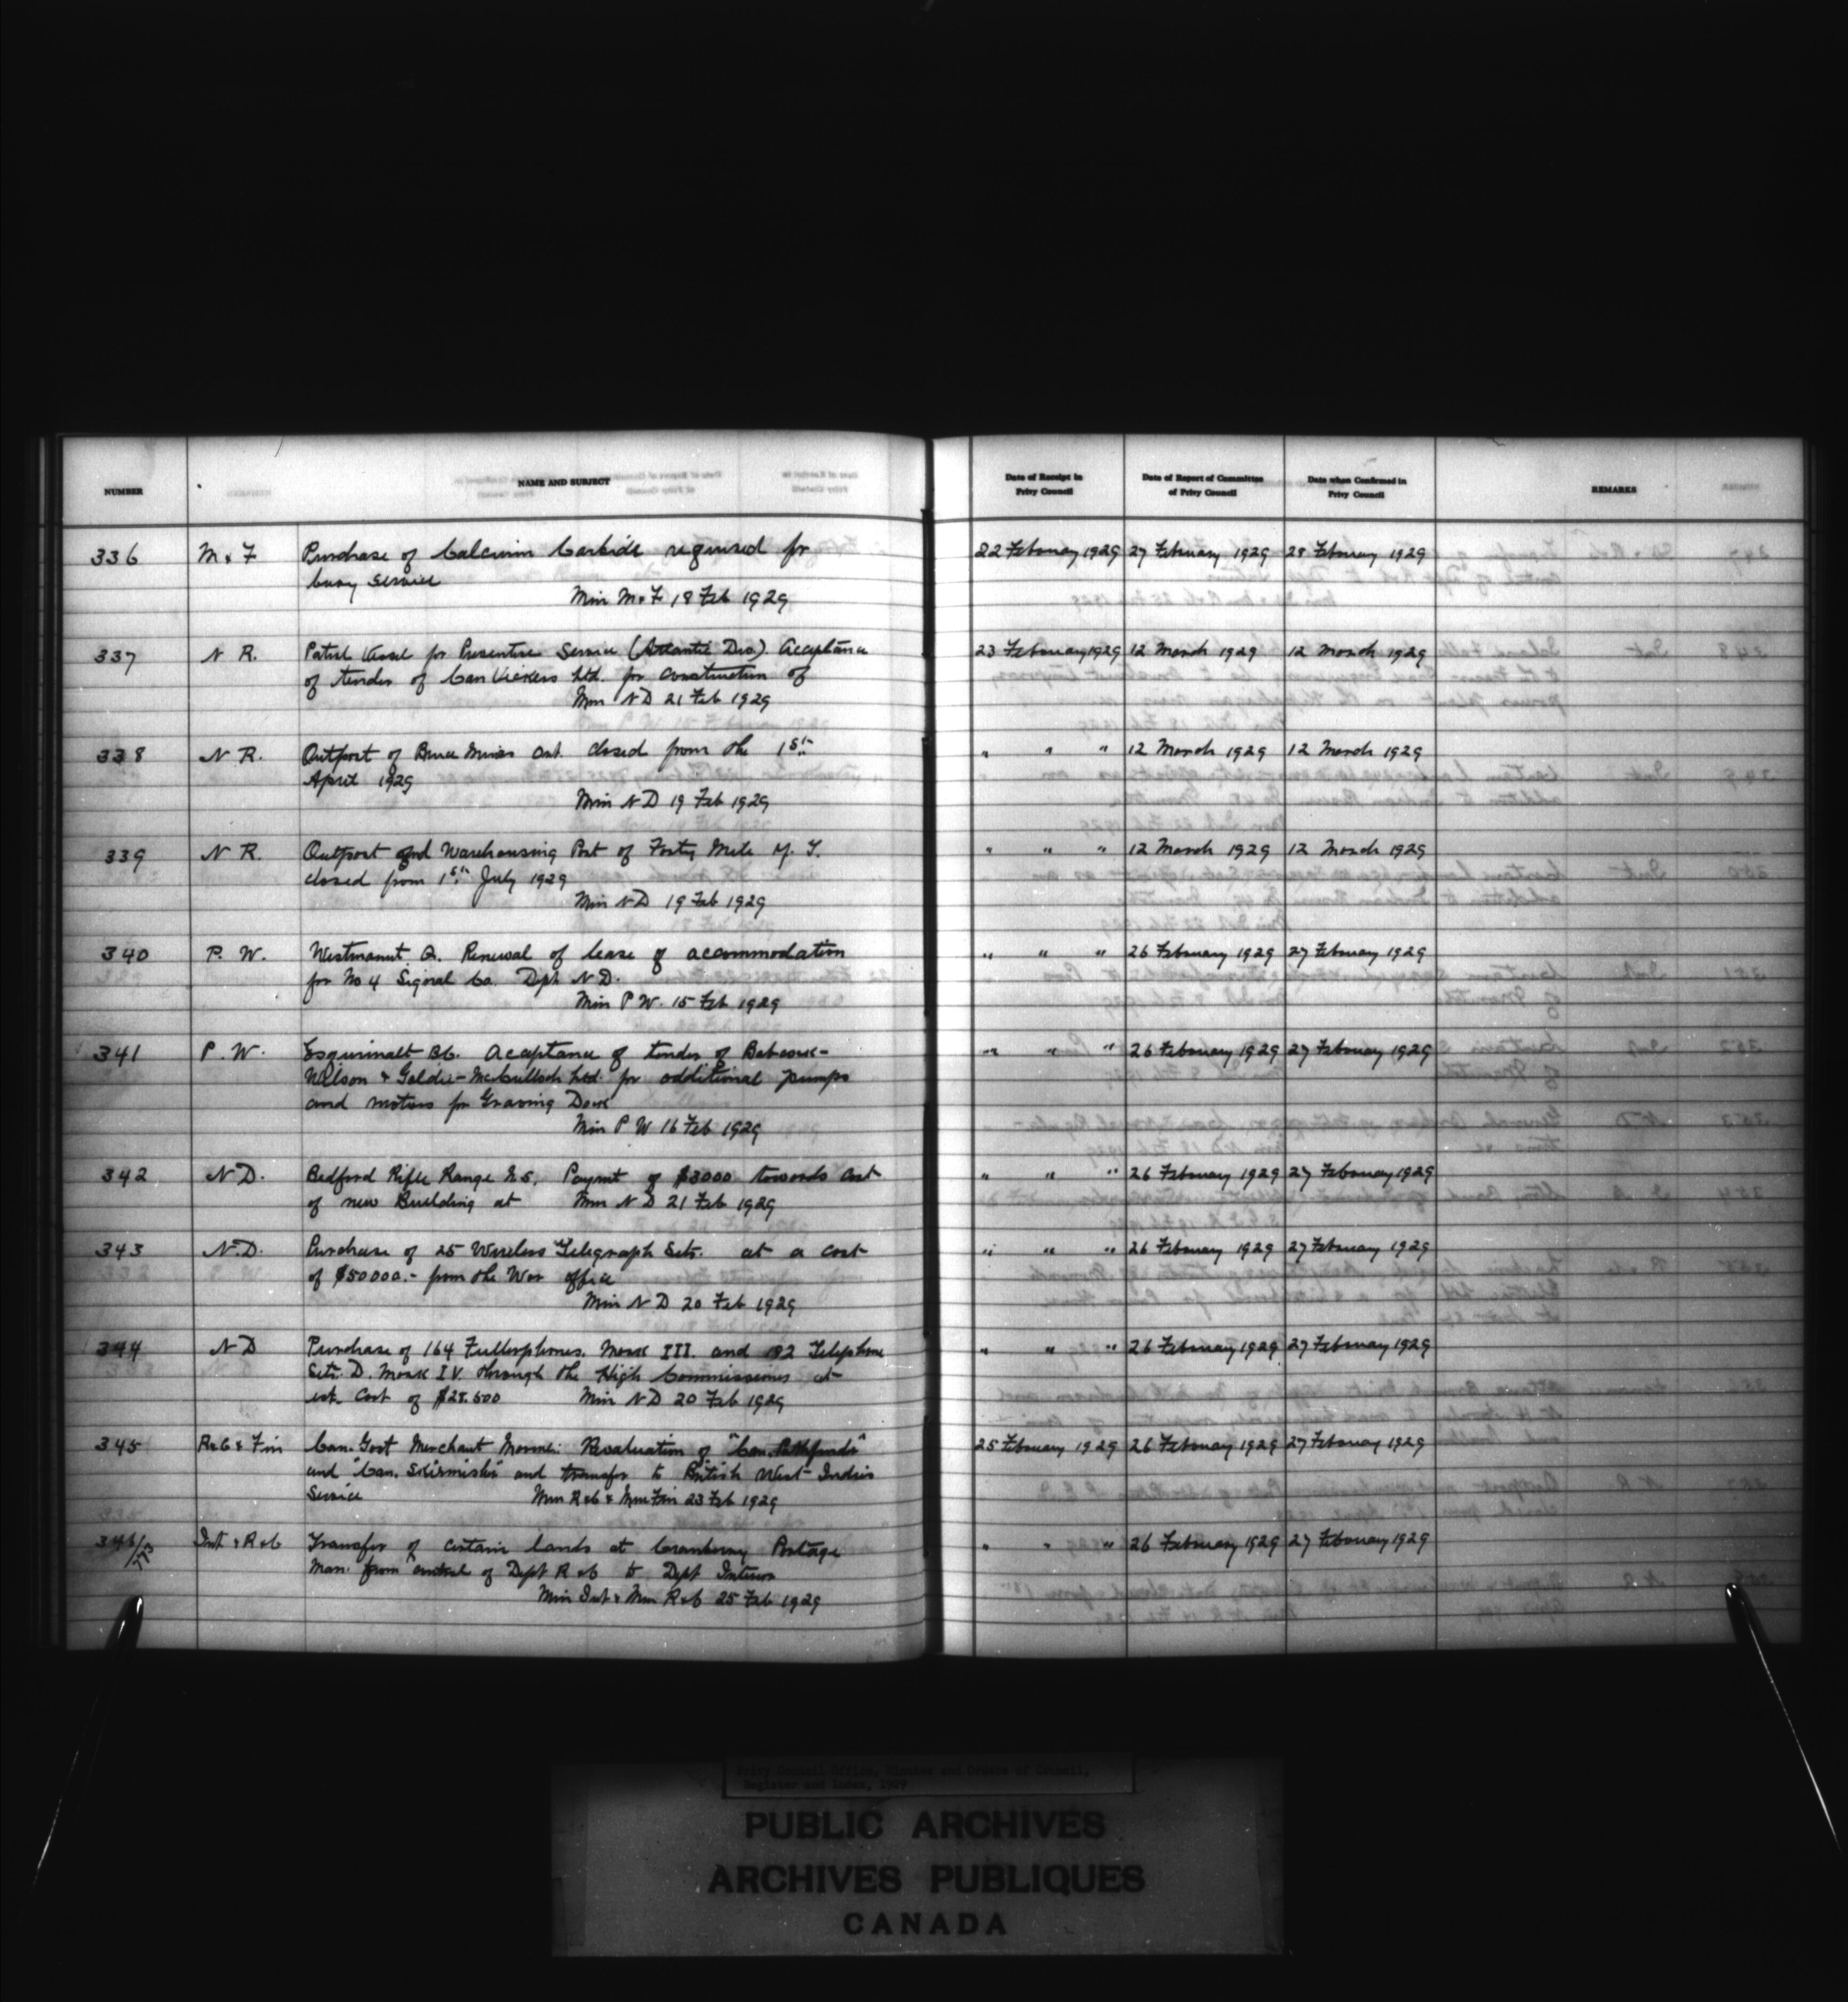 NUMBER NAME AND SUBJECT Date of Receipt in Privy Council Date of Report of Committee of Privy Council Date when Confirmed in Privy Council REMARKS
336 M & F Purchase of Calcium Carbide required for 22 February 1929 27 February 1929 28 February 1929
buoy service
Min M & F 18 Feb 1929
337 N R. Patrol Vessel for Preventive Service (Atlantic Div) Acceptance 23 February 1929 12 March 1929 12 March 1929
of tender of Can Vickers Ltd. for construction of
Min N D 21 Feb 1929
338 N R. Outport of Bruce Mines Ont. closed from the 1st " " " 12 March 1929 12 March 1929
April 1929
Min N D 19 Feb 1929
339 N R. Outport and Warehousing Port of Forty Mile Y. T. " " " 12 March 1929 12 March 1929
closed from 1st July 1929
Min N D 19 Feb 1929
340 P. W. Westmount Q. Renewal of lease of accommodation " " " 26 February 1929 27 February 1929
for No 4 Signal Co. Dept N D.
Min P W. 15 Feb 1929
341 P. W. Esquimalt BC. Acceptance of tender of Babcock- " " " 26 February 1929 27 February 1929
Wilson & Goldie-McCulloch Ltd. for additional pumps
and motors for Graving Dock
Min P W 16 Feb 1929
342 N D. Bedford Rifle Range N.S. Paymt of $3000 towards cost " " " 26 February 1929 27 February 1929
of new Building at Min N D 21 Feb 1929
343 N.D. Purchase of 25 Wireless Telegraph Sets. at a cost " " " 26 February 1929 27 February 1929
of $50000.- from the War office
Min N D 20 Feb 1929
344 N D Purchase of 164 Fullerphones. Mark III. and 192 Telephone " " " 26 February 1929 27 February 1929
Sets. D. Mark IV. through the High Commissioner at
est. cost of $28.500 Min N D 20 Feb 1929
345 R&C & Fin Can. Govt Merchant Marine: Revaluation of "Can. Pathfinder" 25 February 1929 26 February 1929 27 February 1929
and "Can. Skirmisher" and transfer to British West Indies
Service Min R&C & Min Fin 23 Feb 1929
346/ Int & R&C Transfer of certain lands at Cranberry Portage " " " 26 February 1929 27 February 1929
Man. from control of Dept R&C to Dept Interior
Min Int & Min R&C 25 Feb 1929
Privy Council Office, Minutes and Orders of Council,
Register and Index, 1929
PUBLIC ARCHIVES
ARCHIVES PUBLIQUES
CANADA